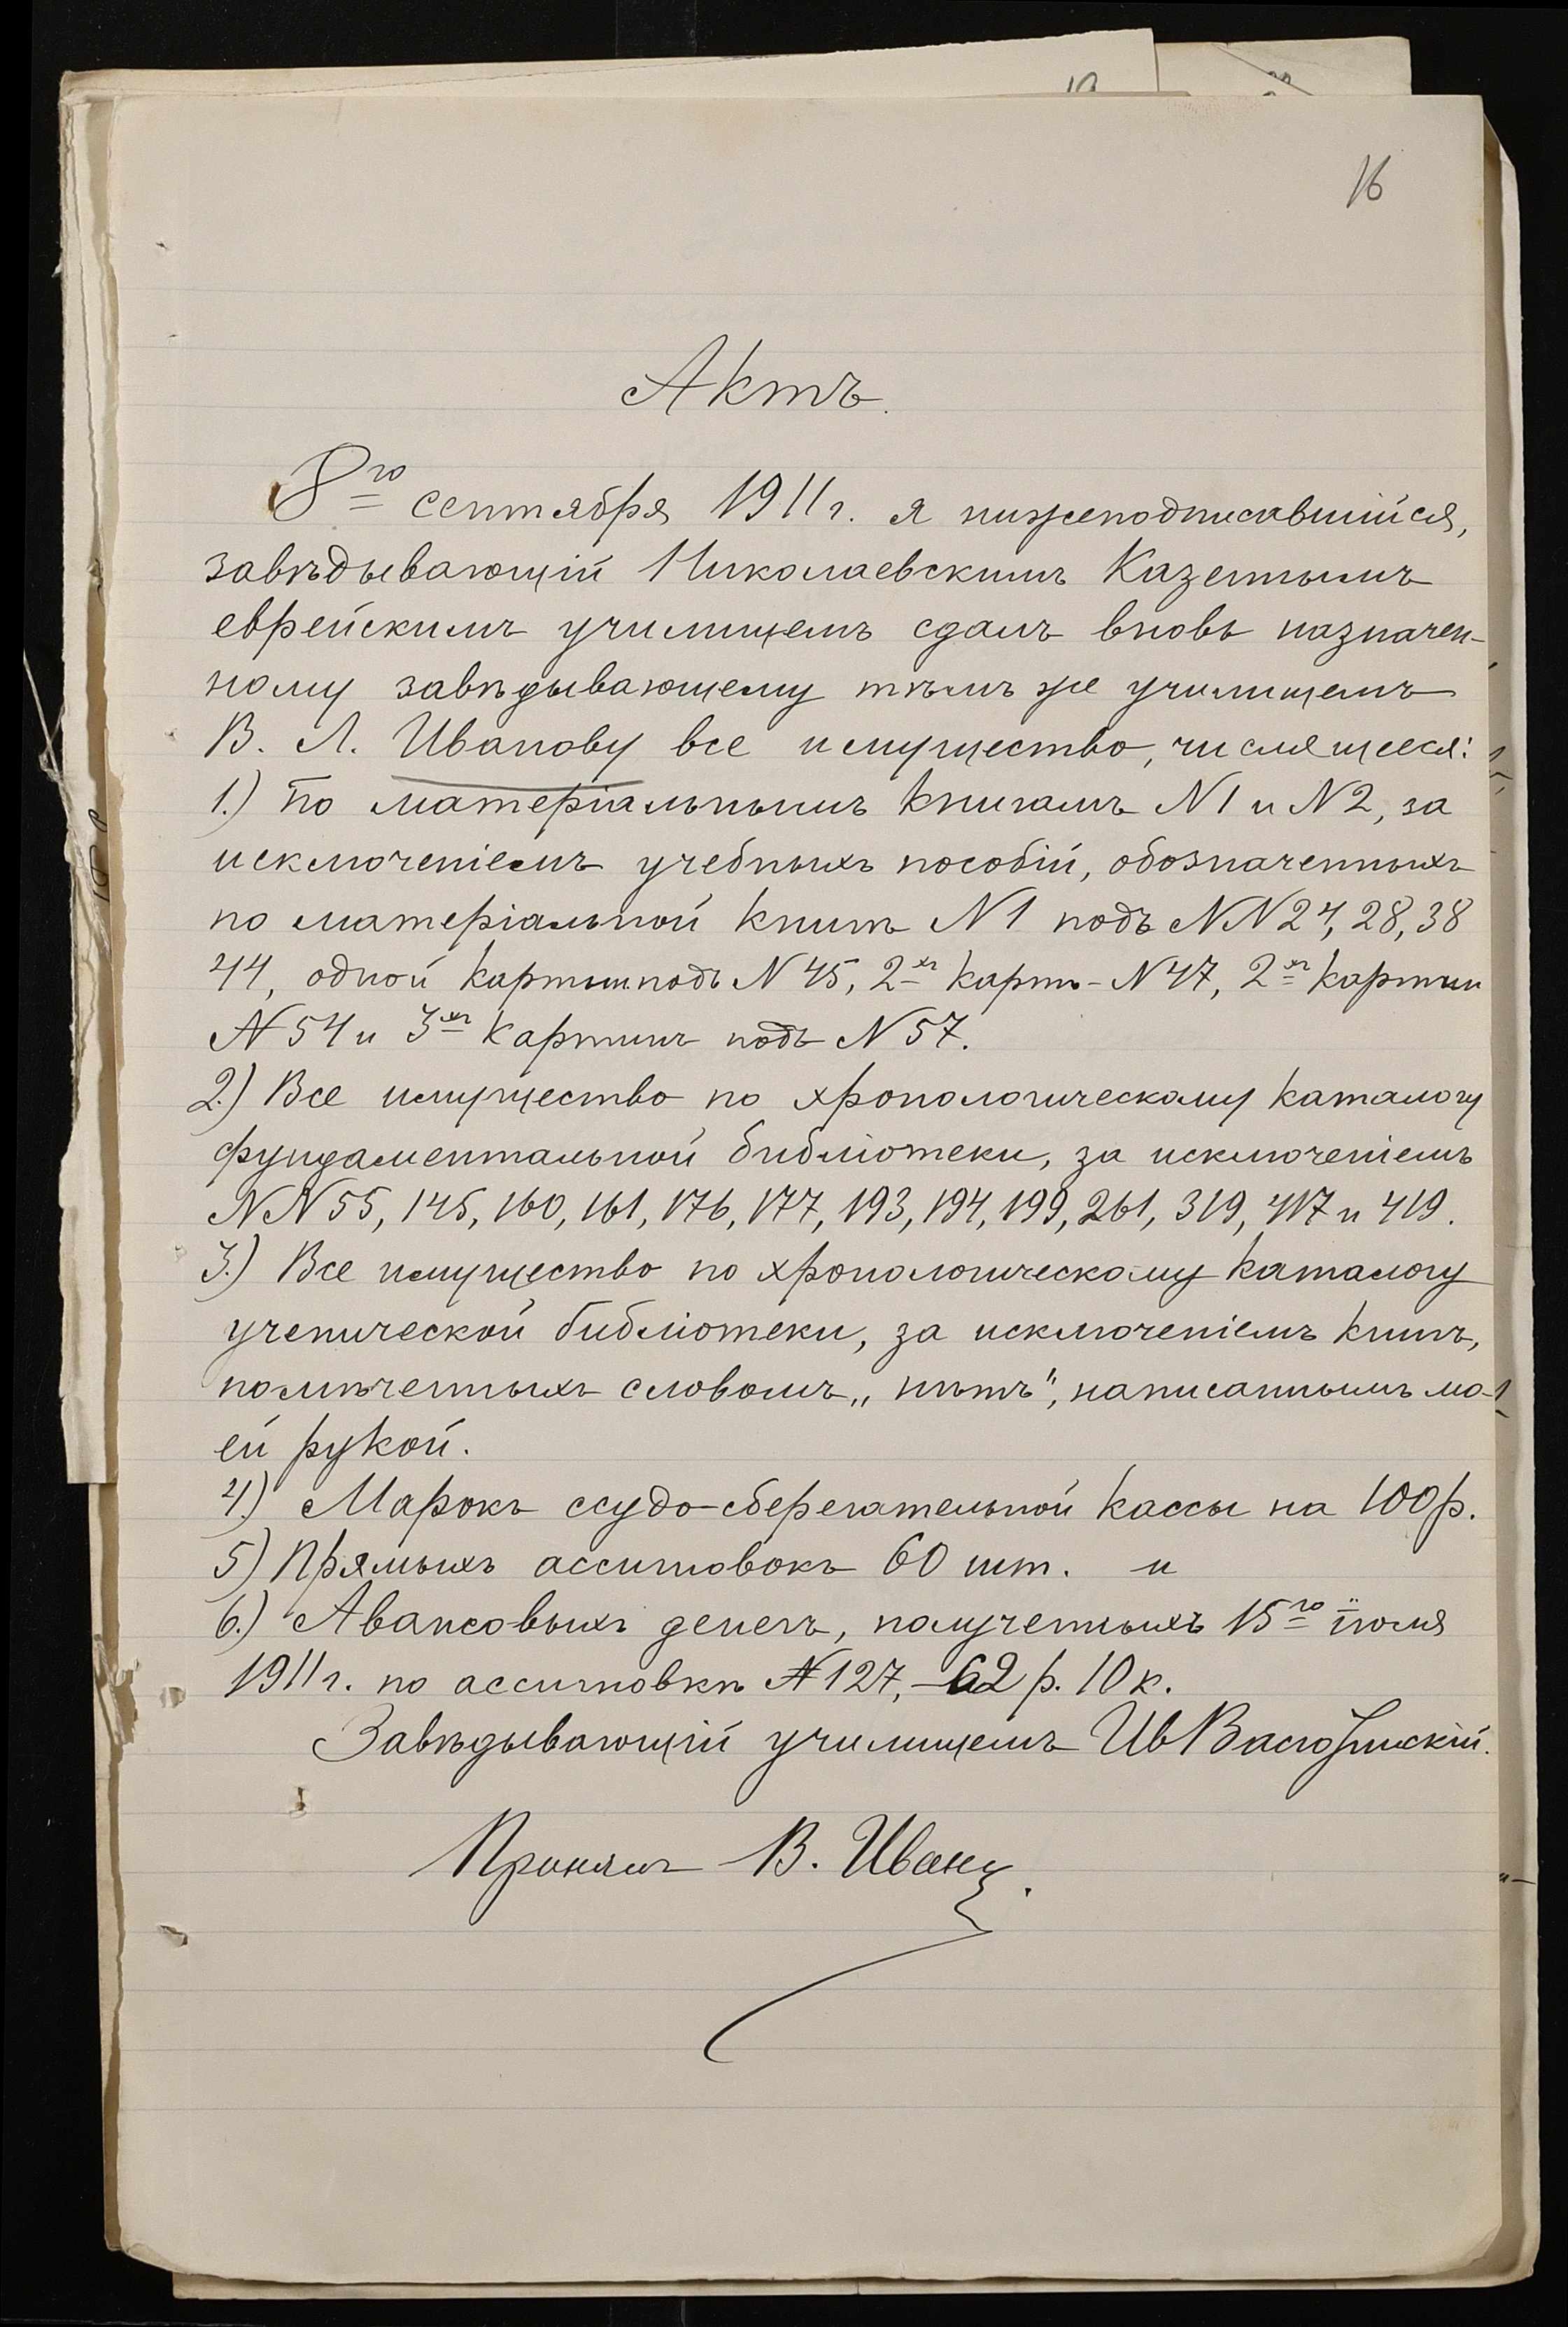 16
Актъ.
8го сентября 1911 г. я нижеподписавшійся,
завѣдывающій Николаевскимъ Казеннымъ
еврейскимъ училищемъ сдалъ вновь назначен-
ному завѣдывающему тѣмъ же училищемъ
В. Л. Иванову все имущество, числящееся:
1.) По матеріальнымъ книгамъ N1 и N2, за
исключеніемъ учебныхъ пособій, обозначенныхъ
по матеріальной книгѣ N1 подъ NN 24, 28, 38
44, одной картины подъ N 45, 2хъ картъ - N 47, 2хъ картин
N 54 и 3хъ картинъ подъ N 57.
2.) Все имущество по хронологическому каталогу
фундаментальной библіотеки, за исключеніемъ
NN 55, 145, 160, 161, 176, 177, 193, 194, 199, 261, 319, 417 и 419.
3.) Все имущество по хронологическому каталогу
ученической библіотеки, за исключеніемъ книгъ,
помѣченныхъ словомъ „нѣтъ", написаннымъ мо-
ей рукой.
4.) Марокъ ссудо-сберегательной кассы на 100 р.
5) Прямыхъ ассигновокъ 60 шт. и
6.) Авансовыхъ денегъ, полученныхъ 15го іюля
1911 г. по ассигновкѣ N 127, - 62 р. 10 к.
Завѣдывающій училищемъ Ив
Принялъ В. Иванов.